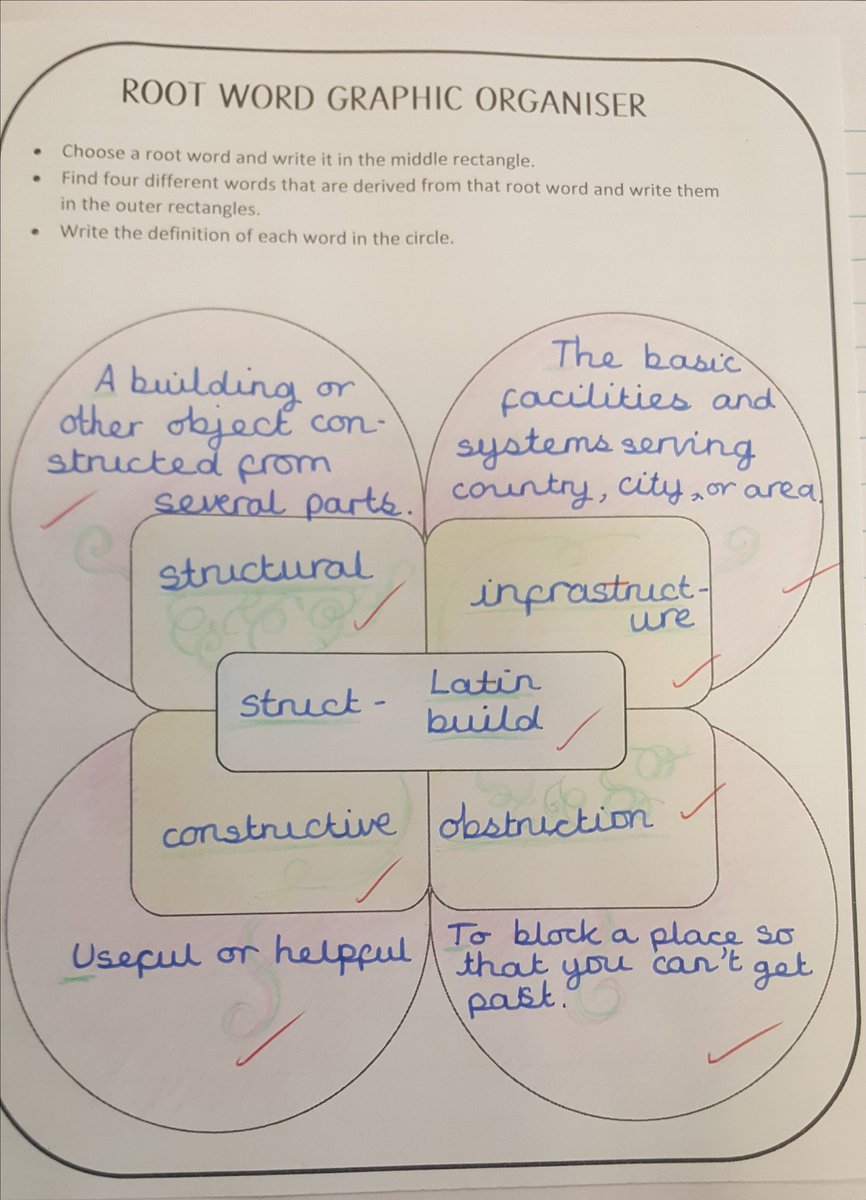 ROOT WORD GRAPHIC ORGANISER
• Choose a root word and write it in the middle rectangle.
• Find four different words that are derived from that root word and write them
in the outer rectangles.
• Write the definition of each word in the circle.
A building or
other object con-
structed from
several parts.
structural
The basic
facilities and
systems serving
country, city, or area.
infrastruct-
ure
struct - Latin
build
constructive
Useful or helpful
obstruction
To block a place so
that you can't get
past.